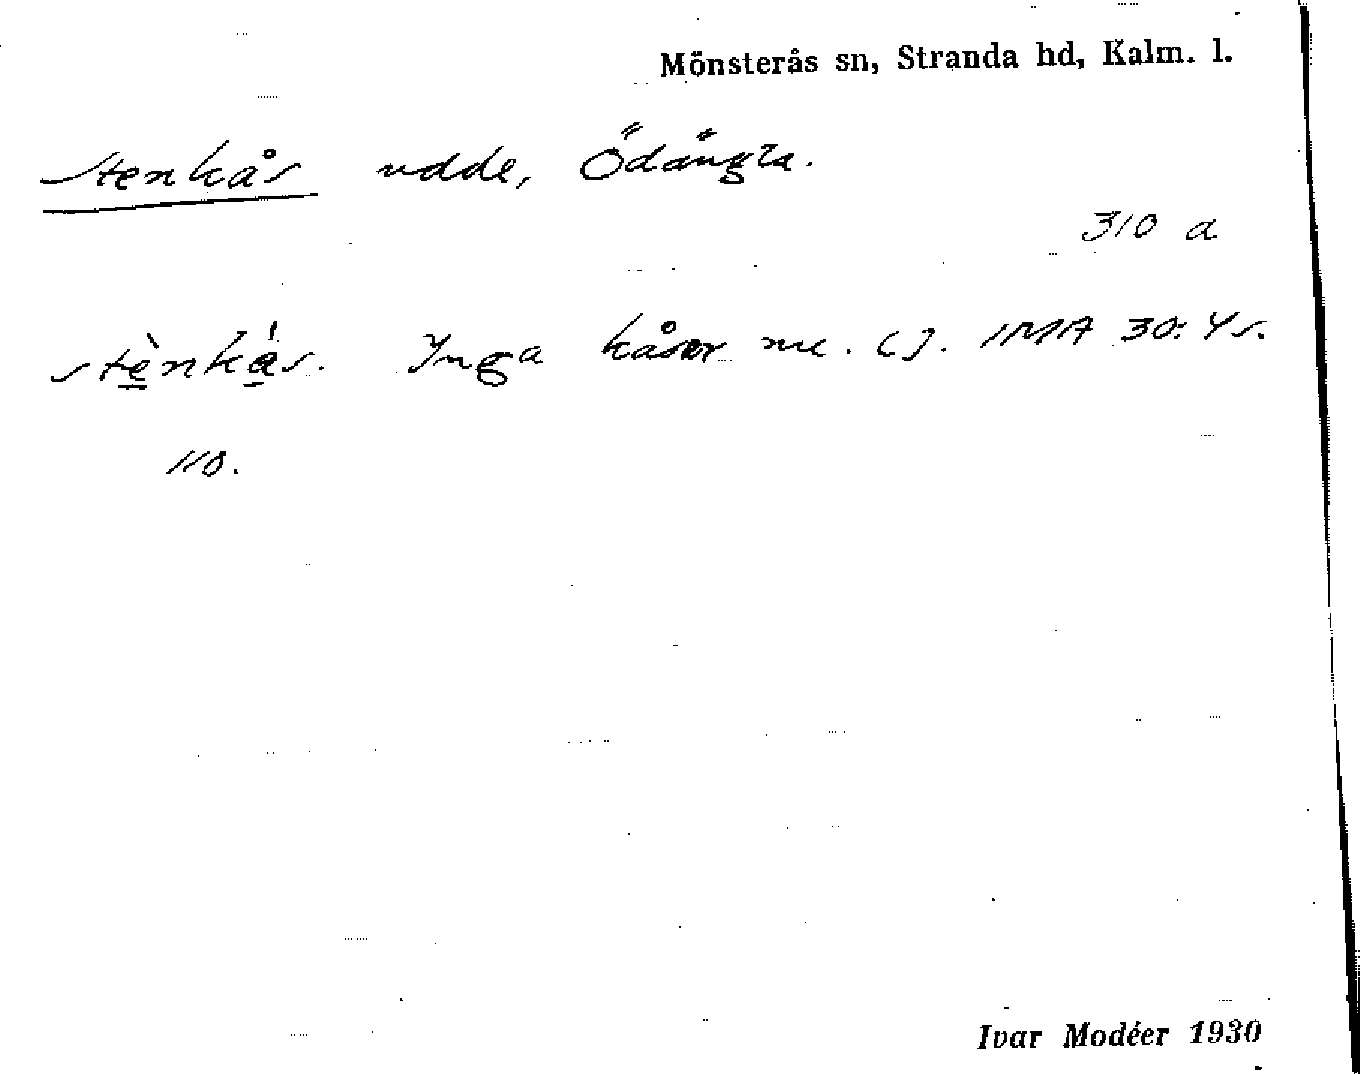 Mönsterås sn, Stranda hd, Kalm. l.
Stenkås udde, Ödängla.
310 a
stènkás. Inga kåsor nu. [ ]. IMA 30: Ys.
110.
Ivar Modéer 1930